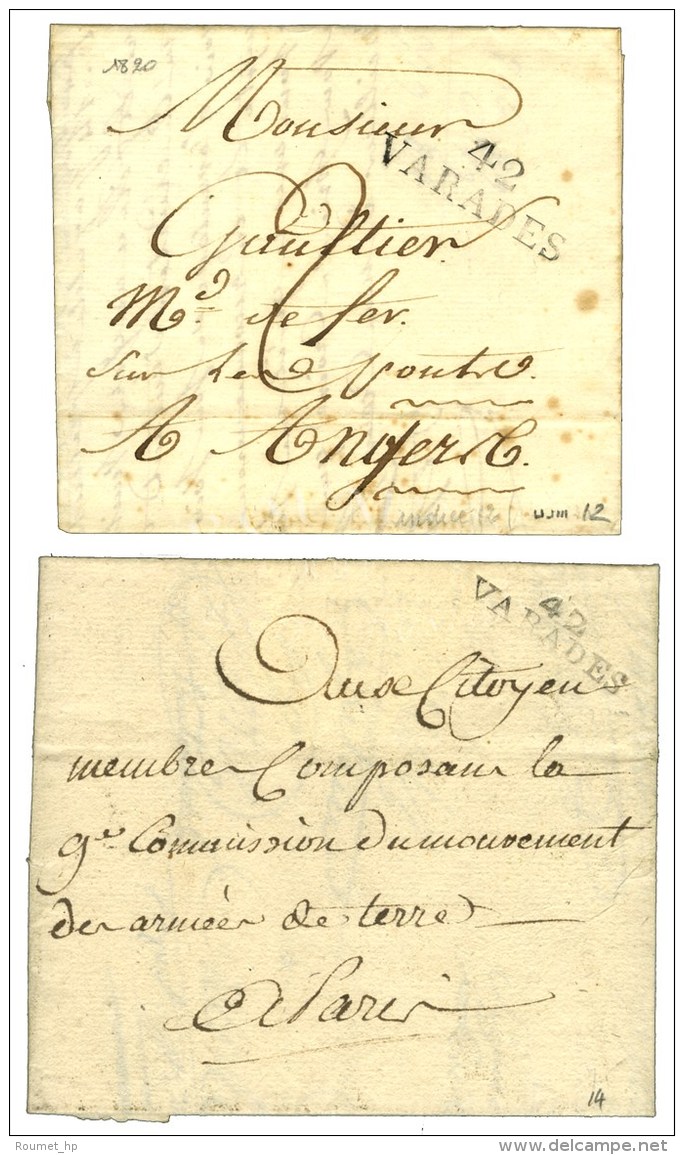 1820
Monsieur
42
VARADES
2
Gaultier
Md. de fer.
sur les ponts.
A Angers.
12
42
VARADES
Aux Citoyen
membre Composans la
9e Commission du mouvement
des armées de terre
A Paris
14
Roumet_hp
delcampe.net